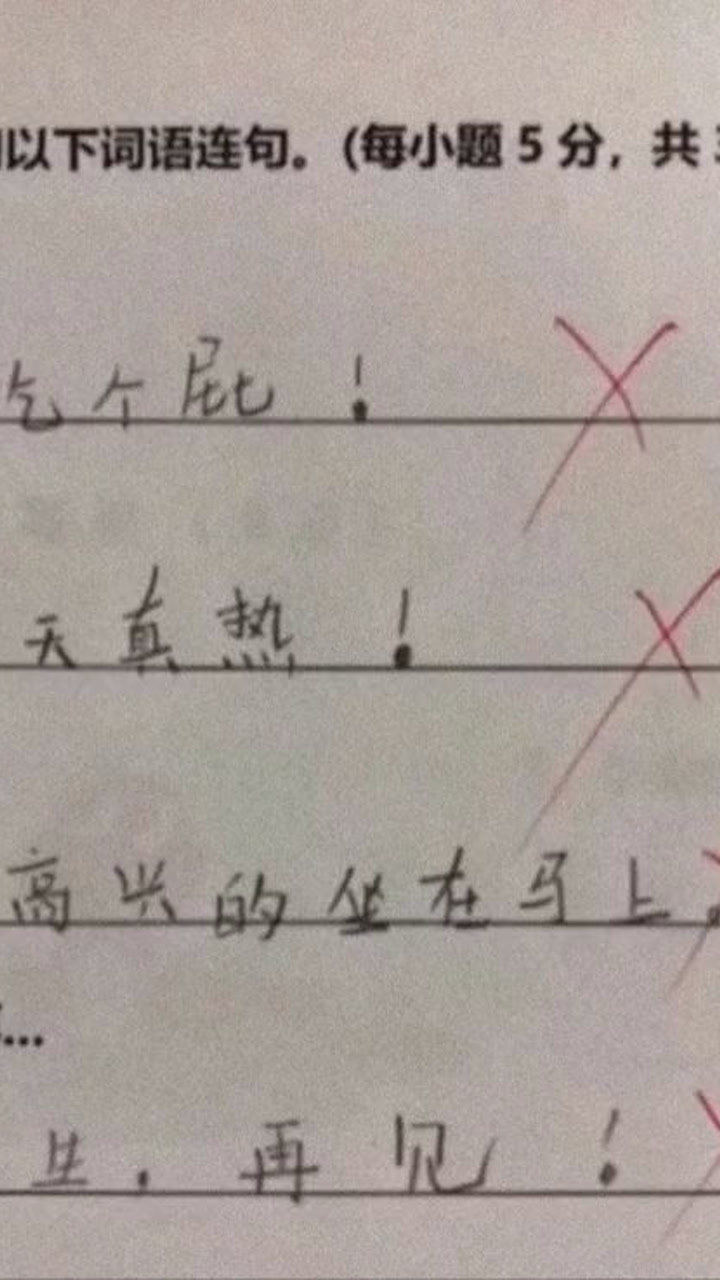 以下词语连句。(每小题 5 分，共
吃个屁！
天真热！
高兴的坐在马上。
...
生，再见！